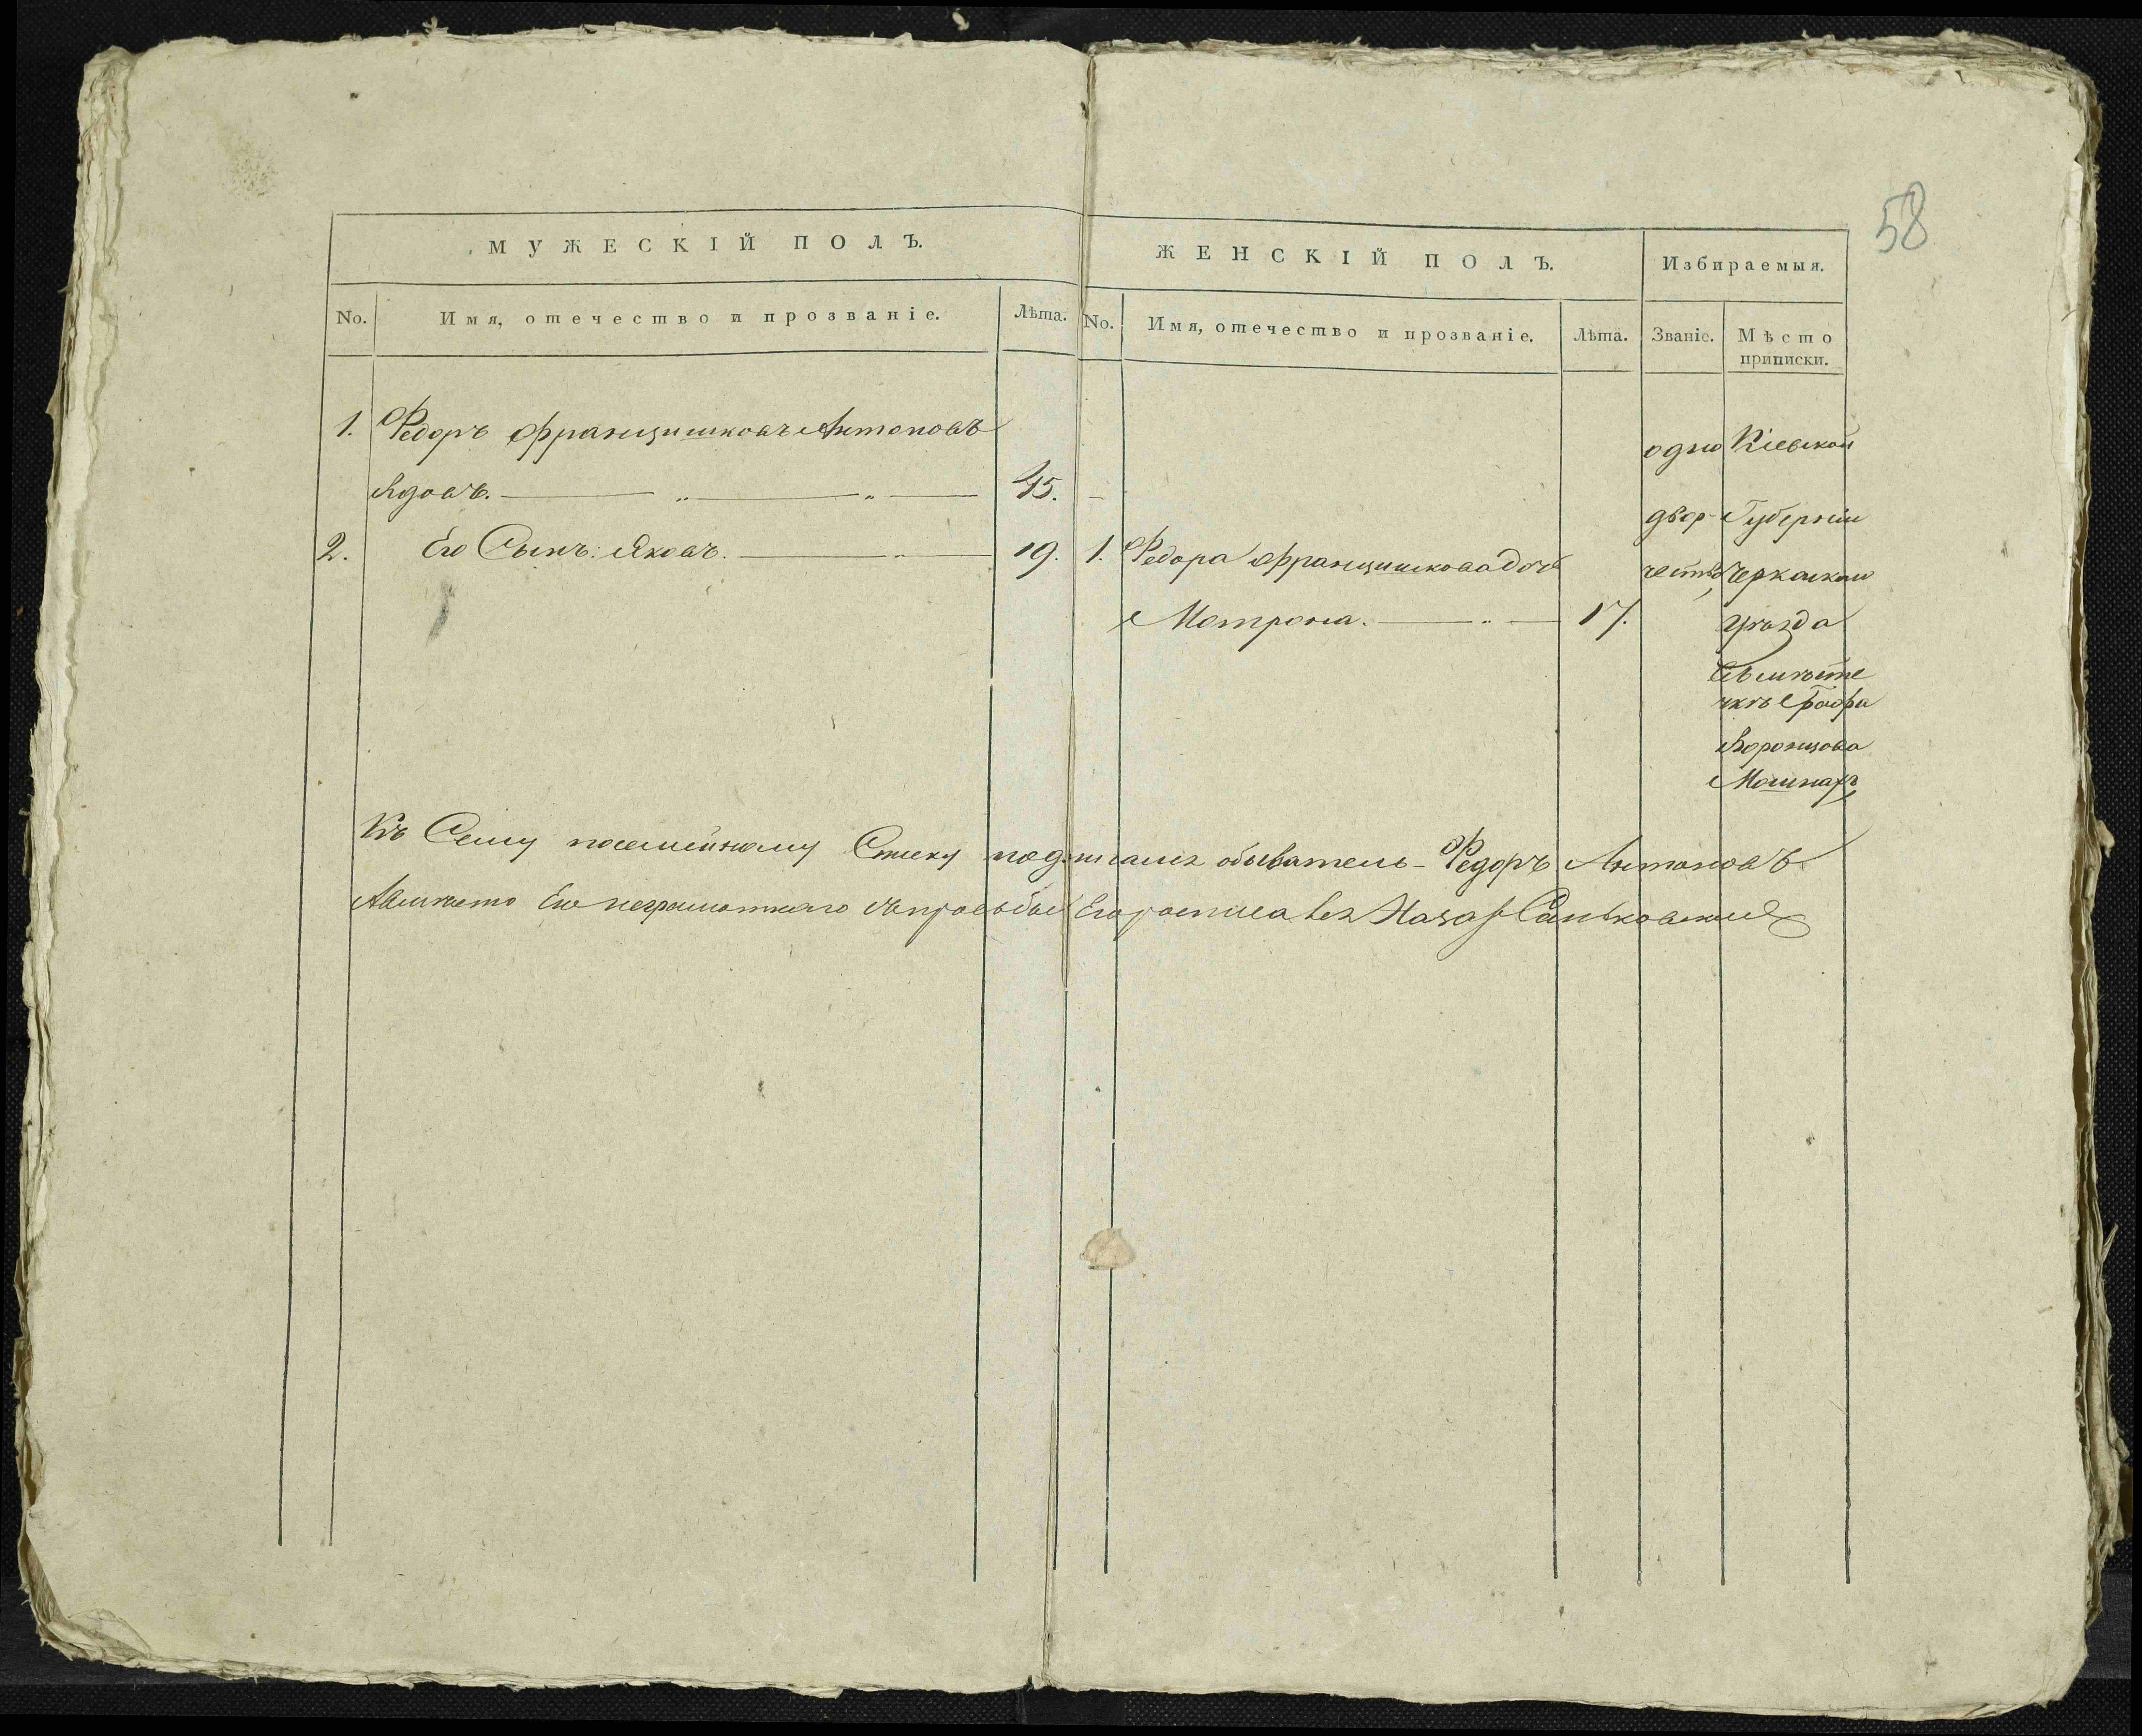 58
МУЖЕСКІЙ ПОЛЪ.
ЖЕНСКІЙ ПОЛЪ.
Избираемыя.
No.
Имя, отечество и прозваніе.
Лѣта.
No.
Имя, отечество и прозваніе.
Лѣта.
Званіе.
Мѣсто
приписки.
1. Федоръ Францишковъ Антоновъ
вдовъ. 45.
2. Его Сынъ: Яковъ. 19.
1. Федора Францишкова дочь
Мотрона. 17.
одно
двор-
чество,
Кіевской
Губерніи
Черкаскаго
уѣзда
въ мѣсте
чкѣ Графа
Воронцова
Мошнахъ
Къ Сему посемейному Списку подписался обыватель - Федоръ Антоновъ
А вмѣсто Его неграмотнаго по прозьбы Его росписався Назар Саньковскій